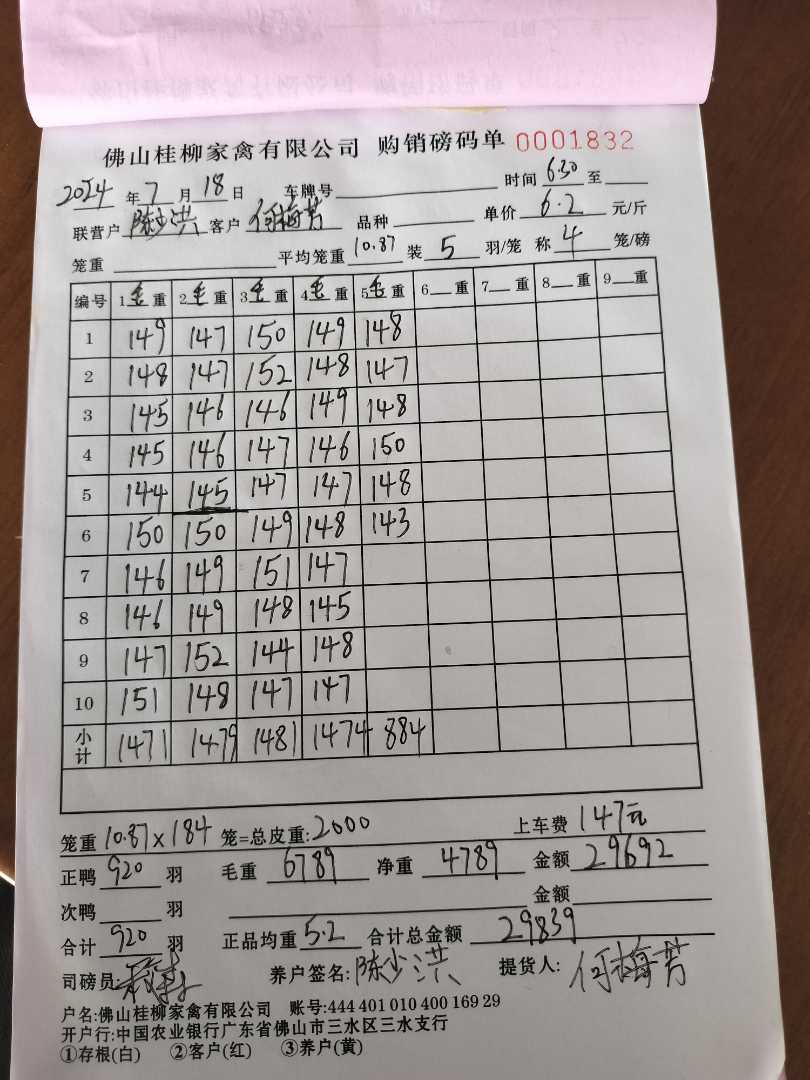 佛山桂柳家禽有限公司 购销磅码单 0001832
2024 年 7 月 18 日 车牌号 时间 6.30 至
联营户 陈少洪 客户 何梅芳 品种 单价 6.2 元/斤
笼重 平均笼重 10.87 装 5 羽/笼 称 4 笼/磅
编号 1毛重 2毛重 3毛重 4毛重 5毛重 6 重 7 重 8 重 9 重
1 149 147 150 149 148
2 148 147 152 148 147
3 145 146 146 149 148
4 145 146 147 146 150
5 144 145 147 147 148
6 150 150 149 148 143
7 146 149 151 147
8 146 149 148 145
9 147 152 144 148
10 151 148 147 147
小计 1471 1479 1481 1474 884
笼重 10.87×184 笼=总皮重:2000 上车费 147元
正鸭 920 羽 毛重 6789 净重 4789 金额 29692
次鸭 羽 金额
合计 920 羽 正品均重 5.2 合计总金额 29839
司磅员 养户签名:陈少洪 提货人: 何梅芳
户名:佛山桂柳家禽有限公司 账号:444 401 010 400 169 29
开户行:中国农业银行广东省佛山市三水区三水支行
①存根(白) ②客户(红) ③养户(黄)